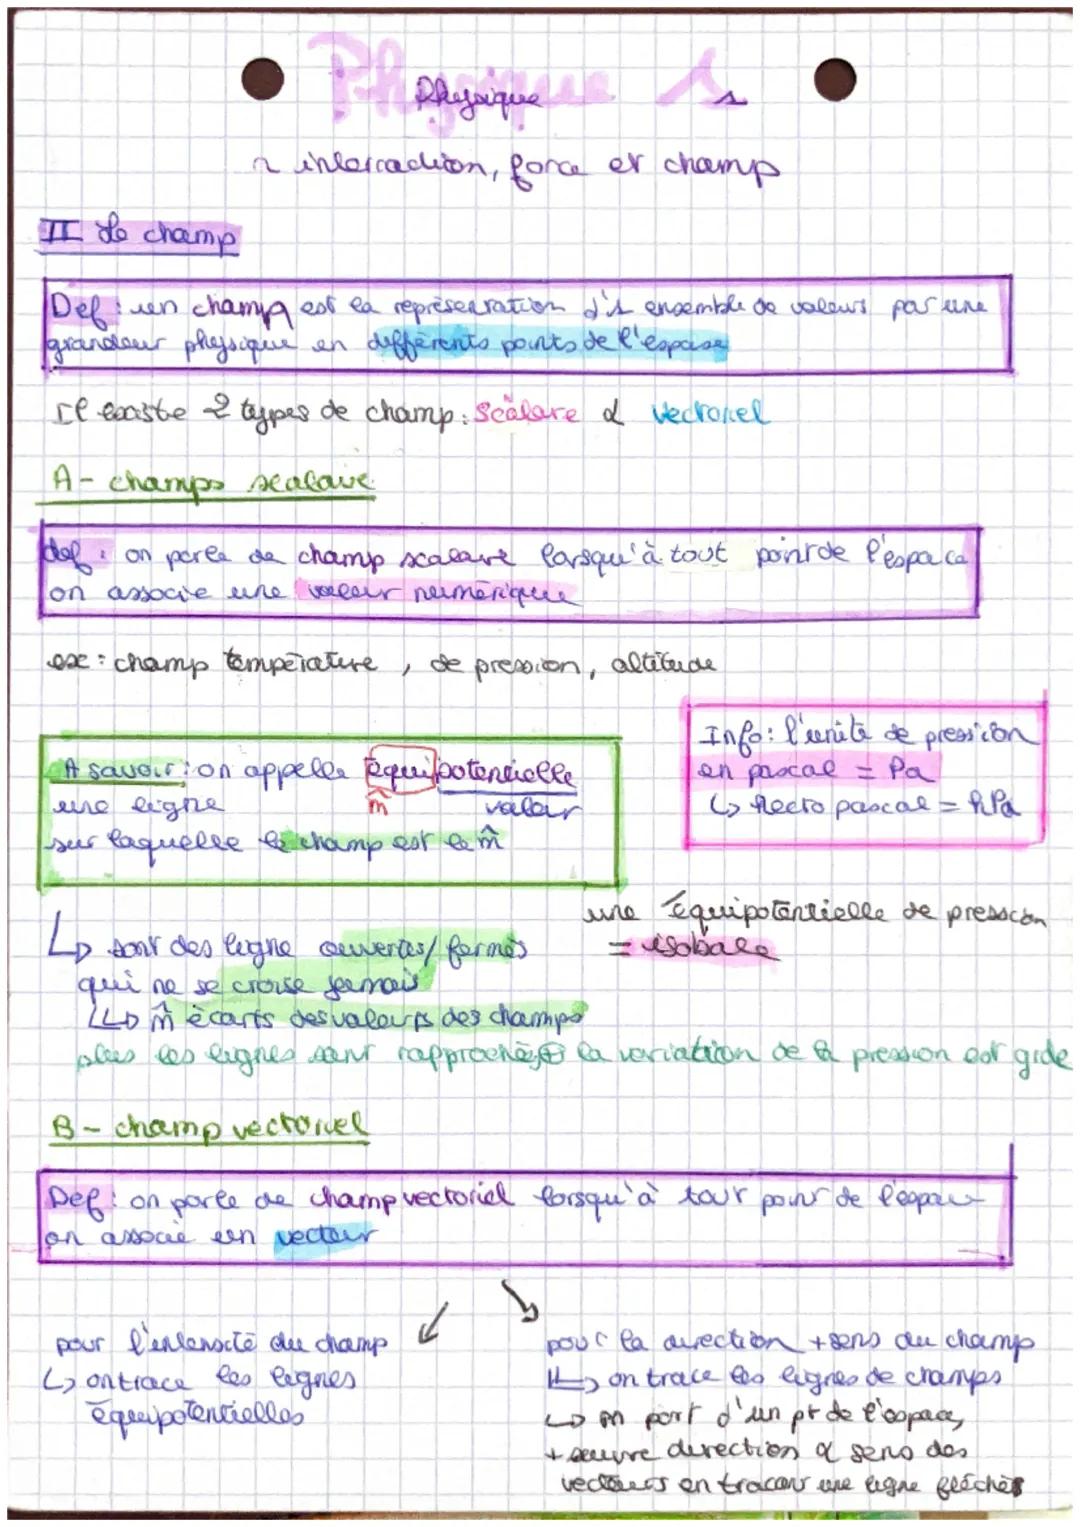 Physique 1
Physique 1
~ interraction, force et champ
II Le champ
Def : un champ est la représentation d'1 ensemble de valeurs par une
grandeur physique en différents points de l'espase
Il existe 2 types de champ : Scalare & vectoriel
A - champs scalaire
def : on parle de champ scalaire lorsqu'à tout point de l'espace
on associe une valeur numérique
ex : champ température, de pression, altitude
Info : l'unité de pression
en pascal = Pa
↳ hecto pascal = hPa
A savoir : on appelle équipotentielle
une ligne m̂ valeur
sur laquelle le champ est le m̂
une équipotentielle de pression
= isobare
↳ sont des ligne ouvertes/fermés
qui ne se croise jamais
↳ m̂ écarts des valeurs des champs
plus les lignes sont rapprochés ⊕ la variation de la pression est gide
B - champ vectoriel
Def : on parle de champ vectoriel lorsqu'à tout point de l'espace
on associe un vecteur
pour l'intensité du champ
↳ on trace les lignes
équipotentielles
pour la direction + sens du champ
↳ on trace les lignes de champs
↳ on part d'un pt de l'espace,
+ suivre direction & sens des
vecteurs en tracant une ligne fléchés